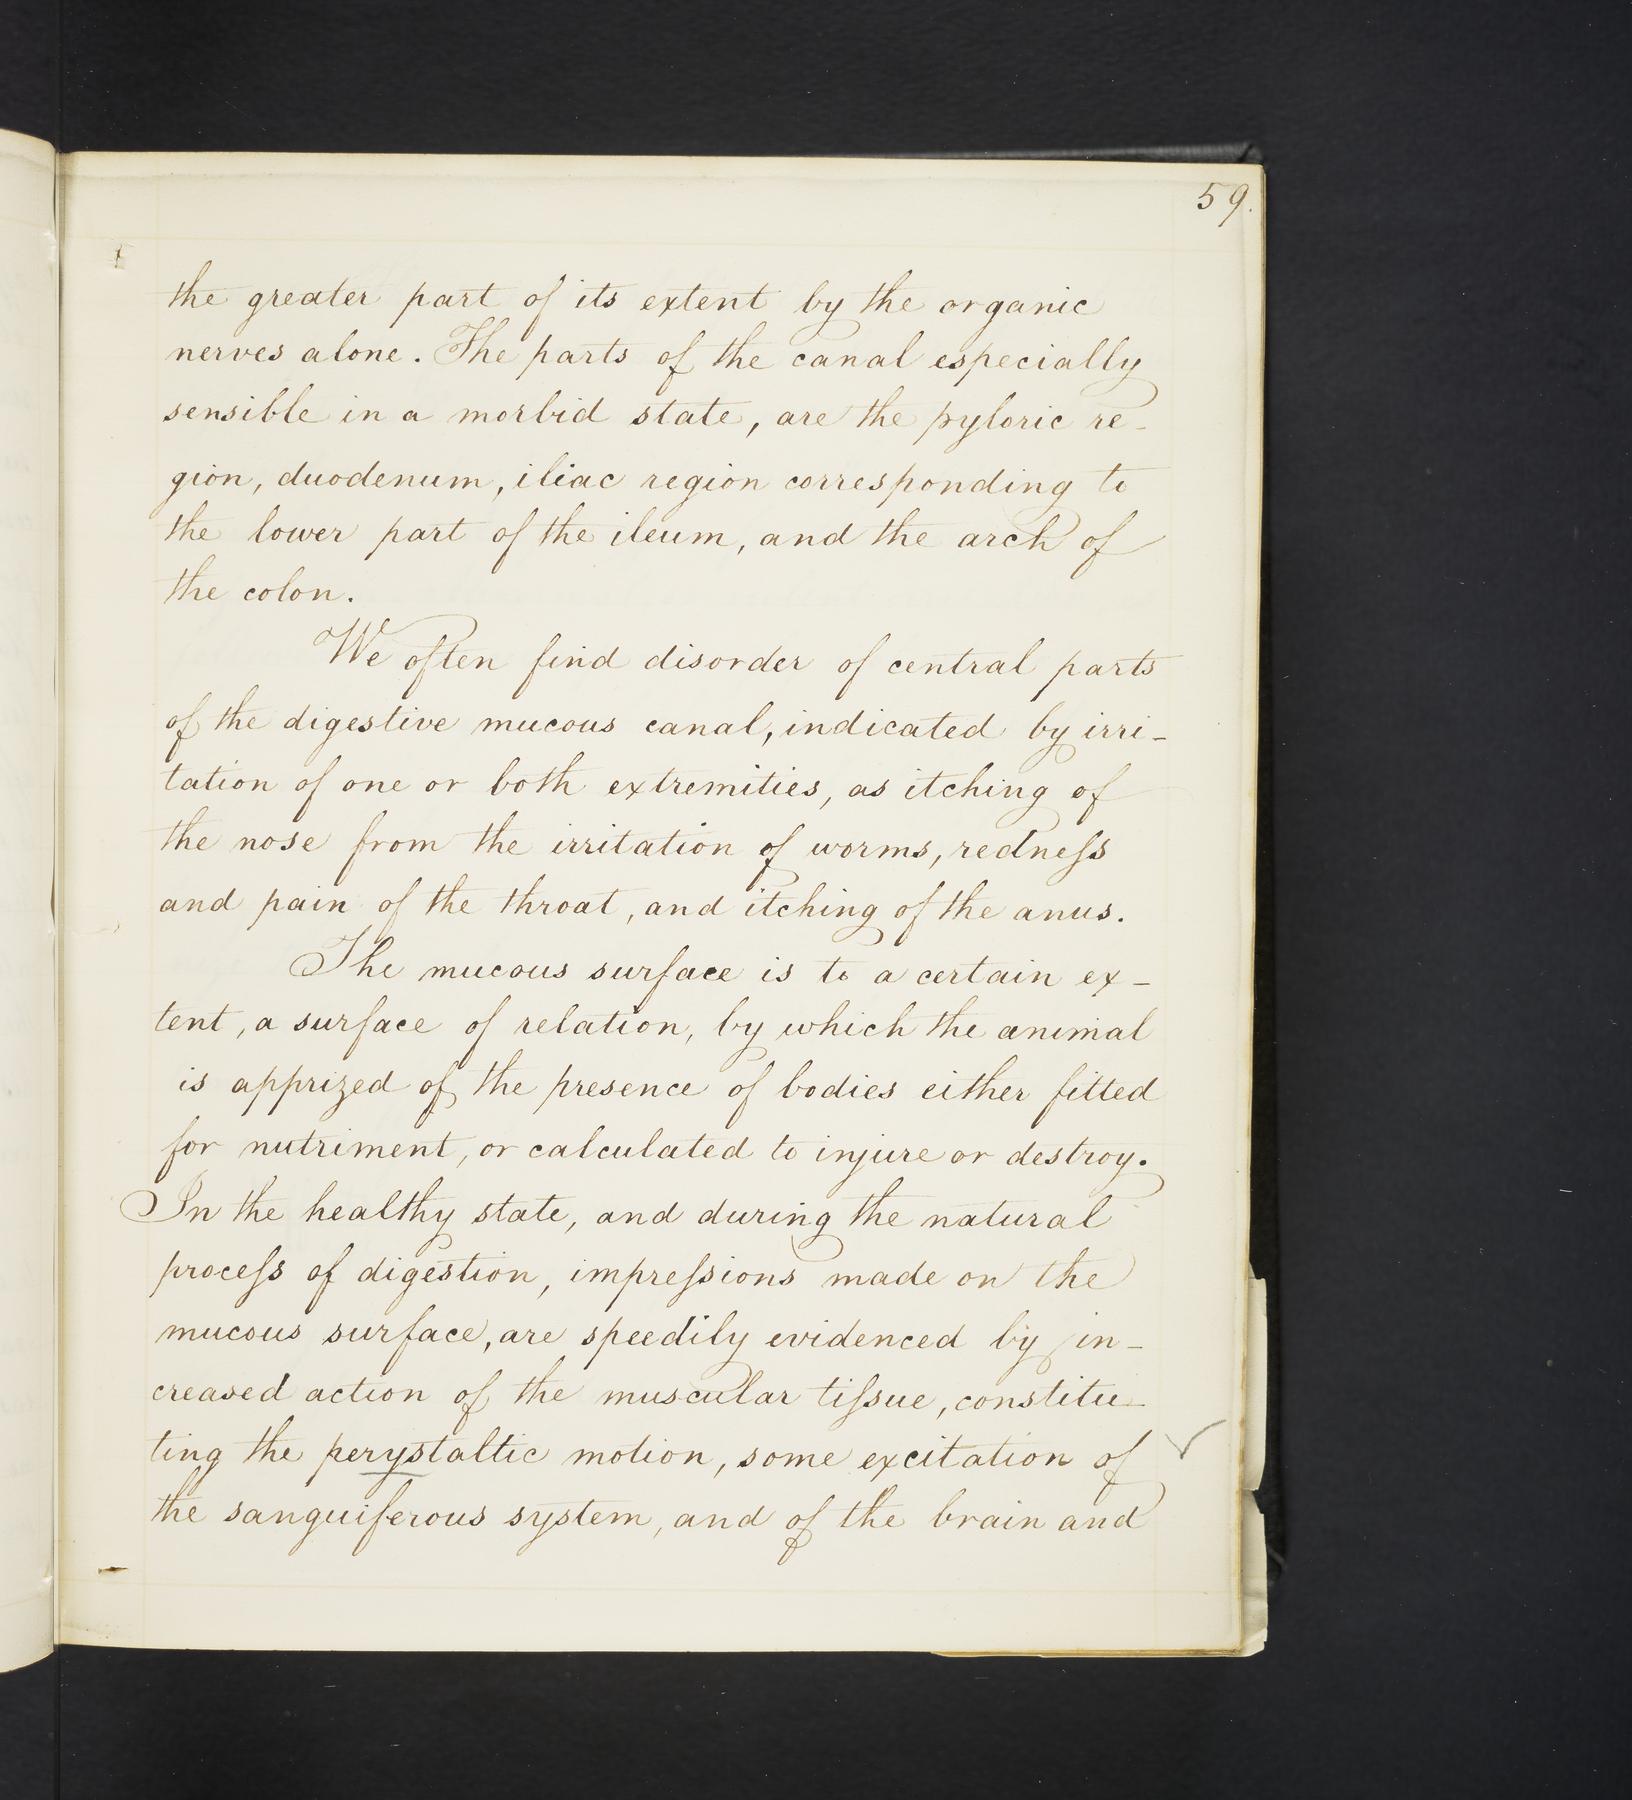 59.
the greater part of its extent by the organic
nerves alone. The parts of the canal especially
sensible in a morbid state, are the pyloric re-
gion, duodenum, iliac region corresponding to
the lower part of the ileum, and the arch of
the colon.
We often find disorder of central parts
of the digestive mucous canal, indicated by irri-
tation of one or both extremities, as itching of
the nose from the irritation of worms, redneſs
and pain of the throat, and itching of the anus.
The mucous surface is to a certain ex-
tent, a surface of relation, by which the animal
is apprized of the presence of bodies either fitted
for nutriment, or calculated to injure or destroy.
In the healthy state, and during the natural
proceſs of digestion, impreſsions made on the
mucous surface, are speedily evidenced by in-
creased action of the muscular tiſsue, constitu-
ting the perystaltic motion, some excitation of
the sanguiferous system, and of the brain and